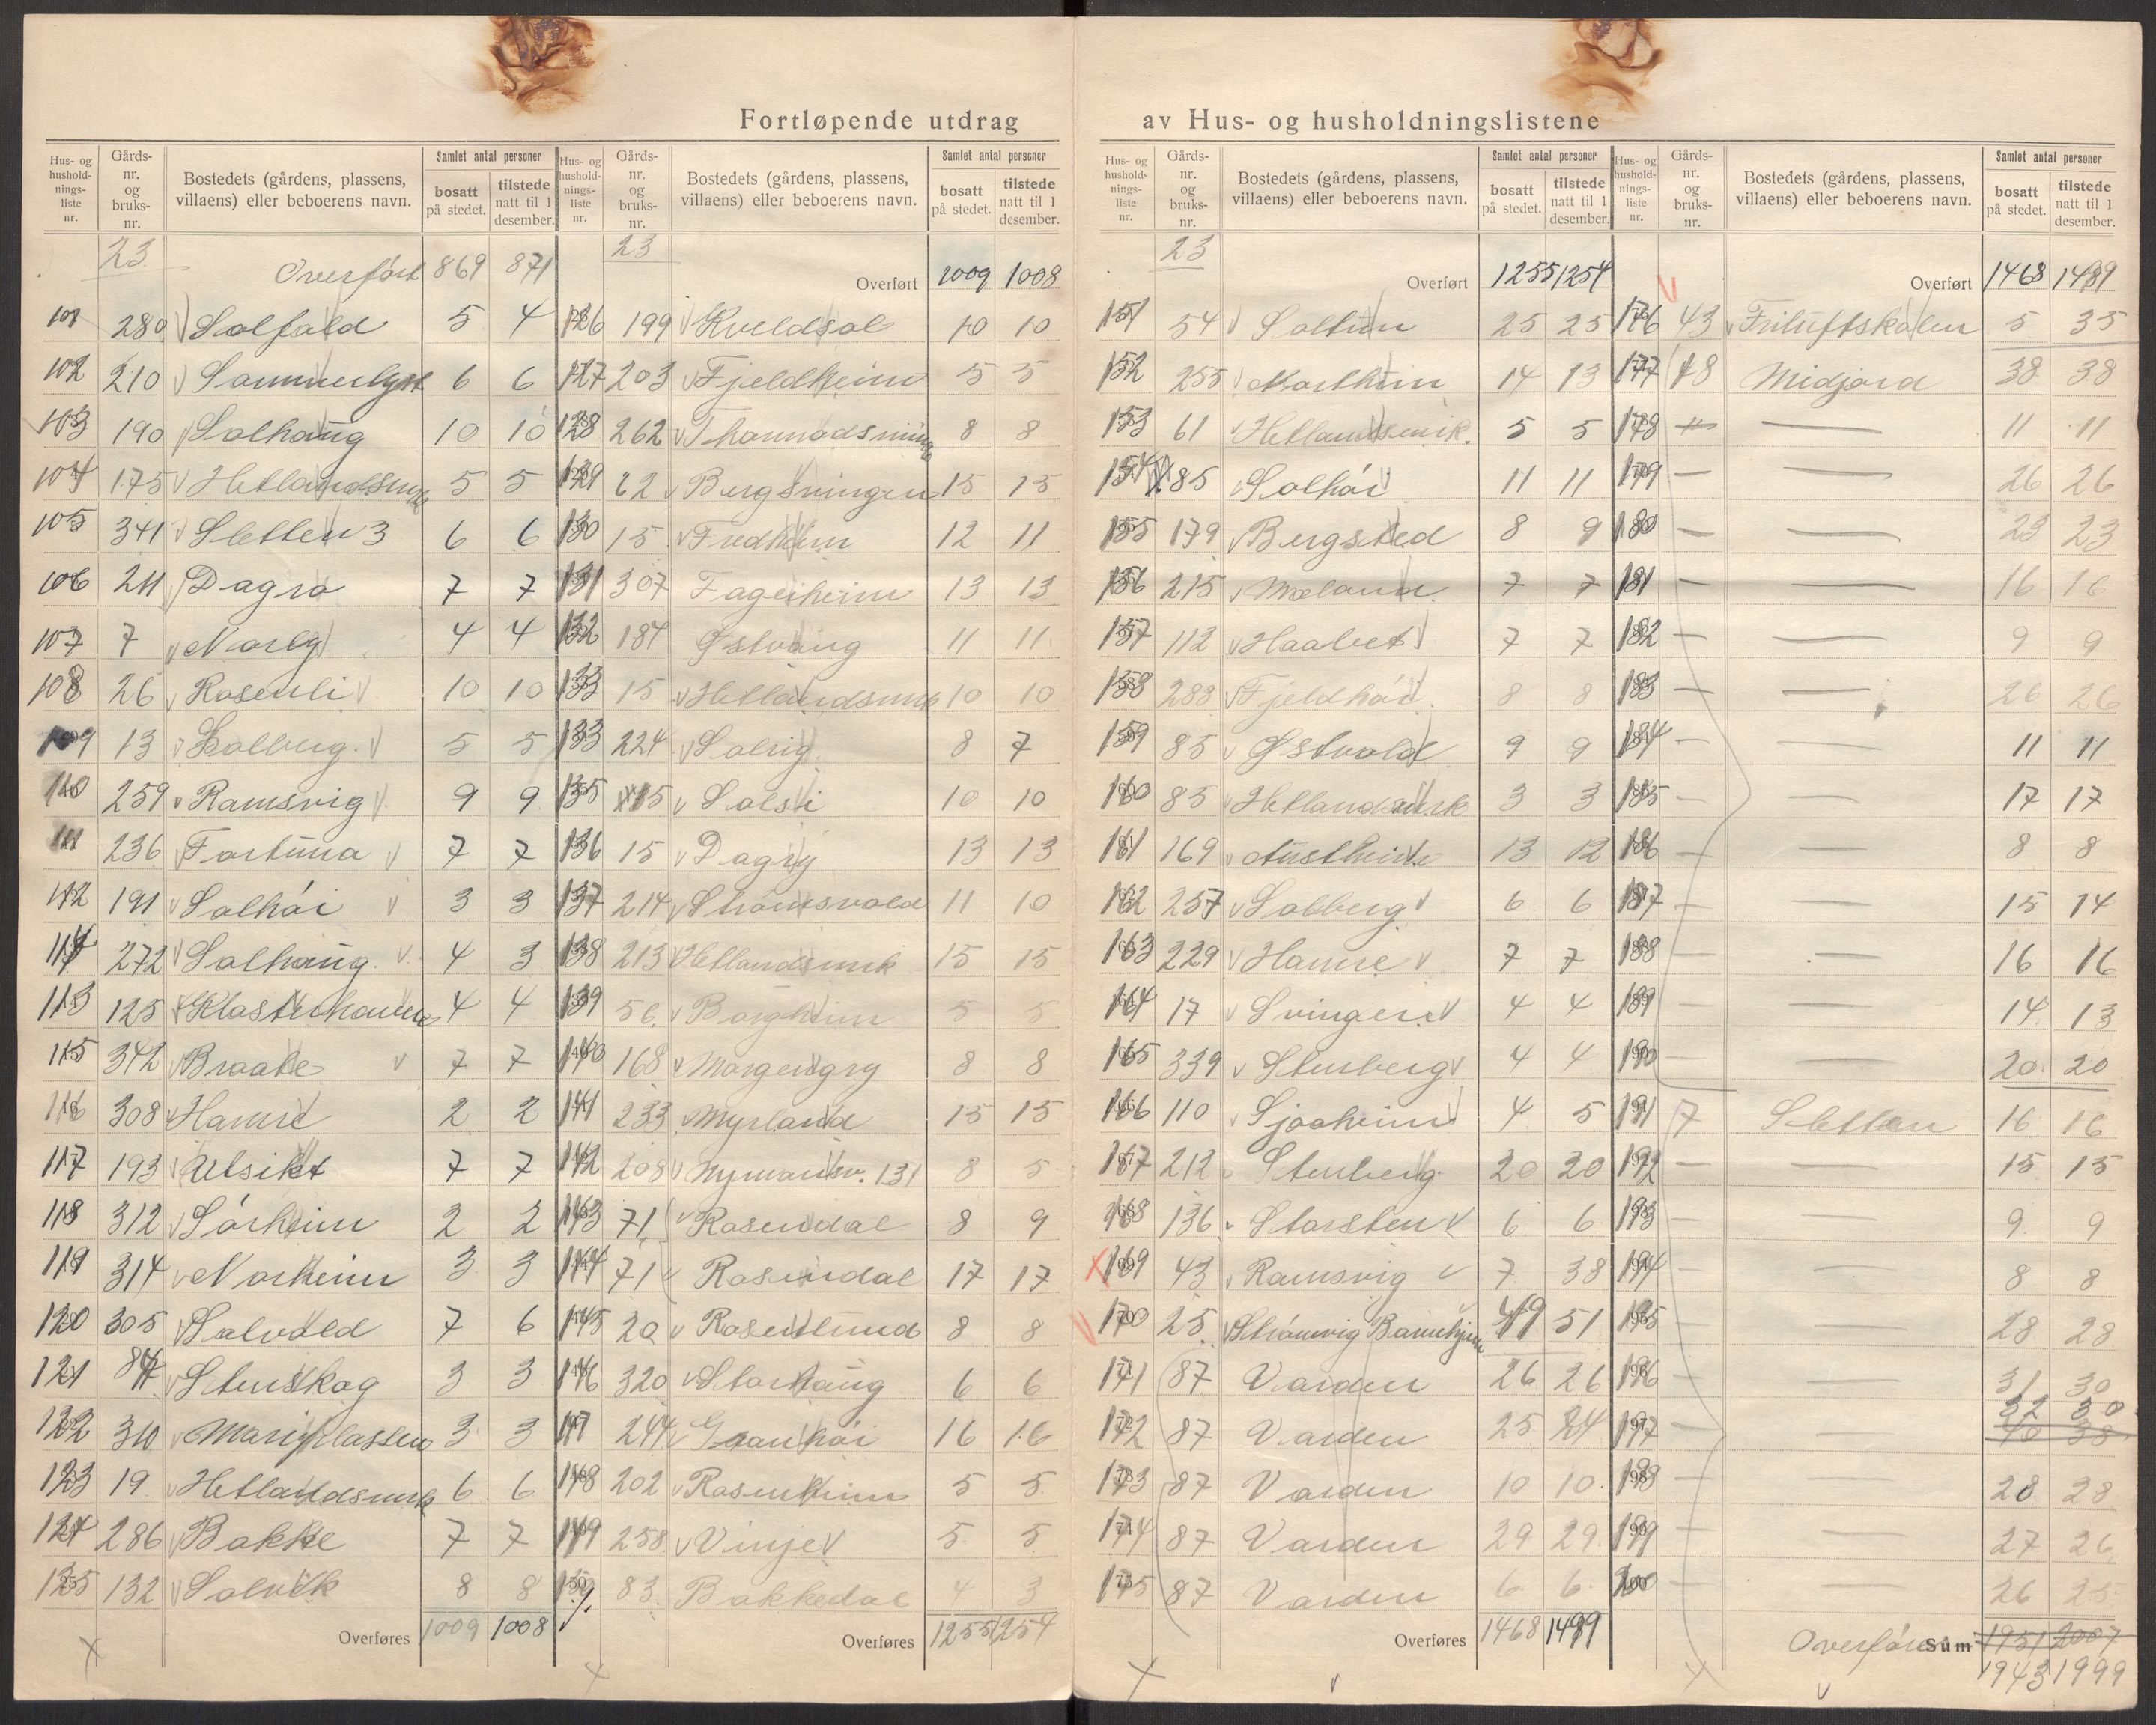 Fortløpende utdrag av Hus- og husholdningslistene
Hus- og hushold- nings- liste nr. | Gårds- nr. og bruks- nr. | Bostedets (gårdens, plassens, villaens) eller beboerens navn. | Samlet antal personer bosatt på stedet. | tilstede natt til 1 desember.
23 Overført 869 871
101 280 Solfald 5 4
102 210 Sommerlyst 6 6
103 190 Solhaug 10 10
104 175 Hetlandsmrk 5 5
105 341 Sletten 3 6 6
106 211 Dagro 7 7
107 7 Norly 4 4
108 26 Rosenli 10 10
109 13 Solberg 5 5
110 259 Ramsvig 9 9
111 236 Fortuna 7 7
112 191 Solhöi 3 3
114 272 Solhaug 4 3
113 125 Klosterhaven 4 4
115 342 Braate 7 7
116 308 Hamre 2 2
117 193 Utsikt 7 7
118 312 Sörheim 2 2
119 314 Norheim 3 3
120 305 Solvold 7 6
121 84 Stenskog 3 3
122 310 Mariplassen 3 3
123 19 Hetlandsmrk 6 6
124 286 Bakke 7 7
125 132 Solvik 8 8
Overføres 1009 1008
Hus- og hushold- nings- liste nr. | Gårds- nr. og bruks- nr. | Bostedets (gårdens, plassens, villaens) eller beboerens navn. | Samlet antal personer bosatt på stedet. | tilstede natt til 1 desember.
23 Overført 1009 1008
126 199 Kveldsol 10 10
127 203 Fjeldheim 5 5
128 262 Thormodsminde 8 8
129 22 Bergsvingen 15 15
130 15 Fredheim 12 11
131 307 Fagerheim 13 13
132 184 Østvang 11 11
133 15 Hetlandsmrk 10 10
133 224 Solvig 8 7
135 15 Solsi 10 10
136 15 Dagny 13 13
137 214 Strömsvold 11 10
138 213 Hetlandsmrk 15 15
139 56 Borgheim 5 5
140 168 Morgengry 8 8
141 233 Myrland 15 15
142 208 Nymansv. 131 8 5
143 71 Rosendal 8 9
144 71 Rosendal 17 17
145 20 Rosenlund 8 8
146 320 Storhaug 6 6
147 244 Granhöi 16 16
148 202 Rosenheim 5 5
149 258 Vinje 5 5
150 83 Bakkedal 4 3
Overføres 1255 1254
Hus- og hushold- nings- liste nr. | Gårds- nr. og bruks- nr. | Bostedets (gårdens, plassens, villaens) eller beboerens navn. | Samlet antal personer bosatt på stedet. | tilstede natt til 1 desember.
23 Overført 1255 1254
151 54 Soltun 25 25
152 255 Northeim 14 13
153 61 Hetlandsmrk. 5 5
154 185 Solhöi 11 11
155 179 Bergsted 8 9
156 215 Mæland 7 7
157 112 Haabet 7 7
158 288 Fjeldhöi 8 8
159 85 Østvold 9 9
160 85 Hetlandsmrk 3 3
161 169 Austheim 13 12
162 257 Solberg 6 6
163 229 Hamre 7 7
164 17 Svingen 4 4
165 339 Stenberg 4 4
166 110 Sjoheim 4 5
167 212 Stenberg 20 20
168 136 Storsten 6 6
169 43 Ramsvig 7 38
170 25 Strömvig Barnehjem 49 51
171 87 Varden 26 26
172 87 Varden 25 24
173 87 Varden 10 10
174 87 Varden 29 29
175 87 Varden 6 6
Overføres 1468 1499
Hus- og hushold- nings- liste nr. | Gårds- nr. og bruks- nr. | Bostedets (gårdens, plassens, villaens) eller beboerens navn. | Samlet antal personer bosatt på stedet. | tilstede natt til 1 desember.
Overført 1468 1489
176 43 Friluftskolen 5 35
177 18 Midjord 38 38
178 — — 11 11
179 — — 26 26
180 — — 23 23
181 — — 16 16
182 — — 9 9
183 — — 26 26
184 — — 11 11
185 — — 17 17
186 — — 8 8
187 — — 15 14
188 — — 16 16
189 — — 14 13
190 — — 20 20
191 7 Sletten 16 16
192 — — 15 15
193 — — 9 9
194 — — 8 8
195 — — 28 28
196 — — 31 30
32 30
197 — — 40 38
198 — — 28 28
199 — — 27 26
200 — — 26 25
Overføres Sum 1951 2007
1943 1999